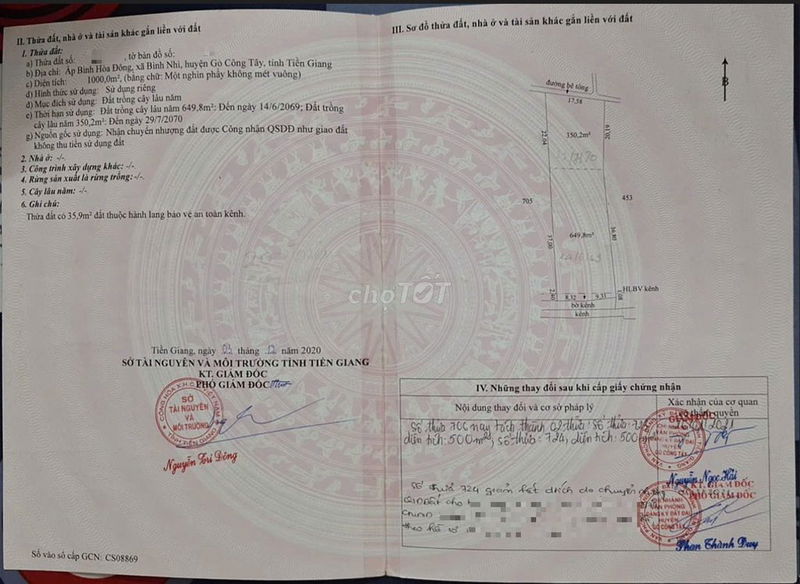 II. Thửa đất, nhà ở và tài sản khác gắn liền với đất
1. Thửa đất:
a) Thửa đất số: , tờ bản đồ số:
b) Địa chỉ: Ấp Bình Hòa Đông, xã Bình Nhì, huyện Gò Công Tây, tỉnh Tiền Giang
c) Diện tích: 1000,0m², (bằng chữ: Một nghìn phẩy không mét vuông)
d) Hình thức sử dụng: Sử dụng riêng
đ) Mục đích sử dụng: Đất trồng cây lâu năm
e) Thời hạn sử dụng: Đất trồng cây lâu năm 649,8m²: Đến ngày 14/6/2069; Đất trồng
cây lâu năm 350,2m²: Đến ngày 29/7/2070
g) Nguồn gốc sử dụng: Nhận chuyển nhượng đất được Công nhận QSDĐ như giao đất
không thu tiền sử dụng đất
2. Nhà ở: -/-
3. Công trình xây dựng khác: -/-
4. Rừng sản xuất là rừng trồng: -/-
5. Cây lâu năm: -/-
6. Ghi chú:
Thửa đất có 35,9m² đất thuộc hành lang bảo vệ an toàn kênh.
Tiền Giang, ngày 03 tháng 12 năm 2020
SỞ TÀI NGUYÊN VÀ MÔI TRƯỜNG TỈNH TIỀN GIANG
KT. GIÁM ĐỐC
PHÓ GIÁM ĐỐC
SỞ
TÀI NGUYÊN
VÀ
MÔI TRƯỜNG
Nguyễn Trí Đông
Số vào sổ cấp GCN: CS08869
III. Sơ đồ thửa đất, nhà ở và tài sản khác gắn liền với đất
B
đường bê tông
17,58
22,04
350,2m²
705
453
37,00
649,8m²
36,80
2,40
HLBV kênh
8,32
9,33
bờ kênh
kênh
chợTỐT
IV. Những thay đổi sau khi cấp giấy chứng nhận
Nội dung thay đổi và cơ sở pháp lý
Xác nhận của cơ quan
có thẩm quyền
Số thửa nay tách thành 02 thửa: Số thửa:
diện tích: 500m², số thửa: 724, diện tích: 500m²
Nguyễn Ngọc Hải
Số thửa 724 giảm hết diện tích do chuyển
KT. GIÁM ĐỐC
PHÓ GIÁM ĐỐC
CHI NHÁNH
VĂN PHÒNG
ĐĂNG KÝ ĐẤT ĐAI
HUYỆN
GÒ CÔNG TÂY
theo hồ sơ
Phan Thành Duy